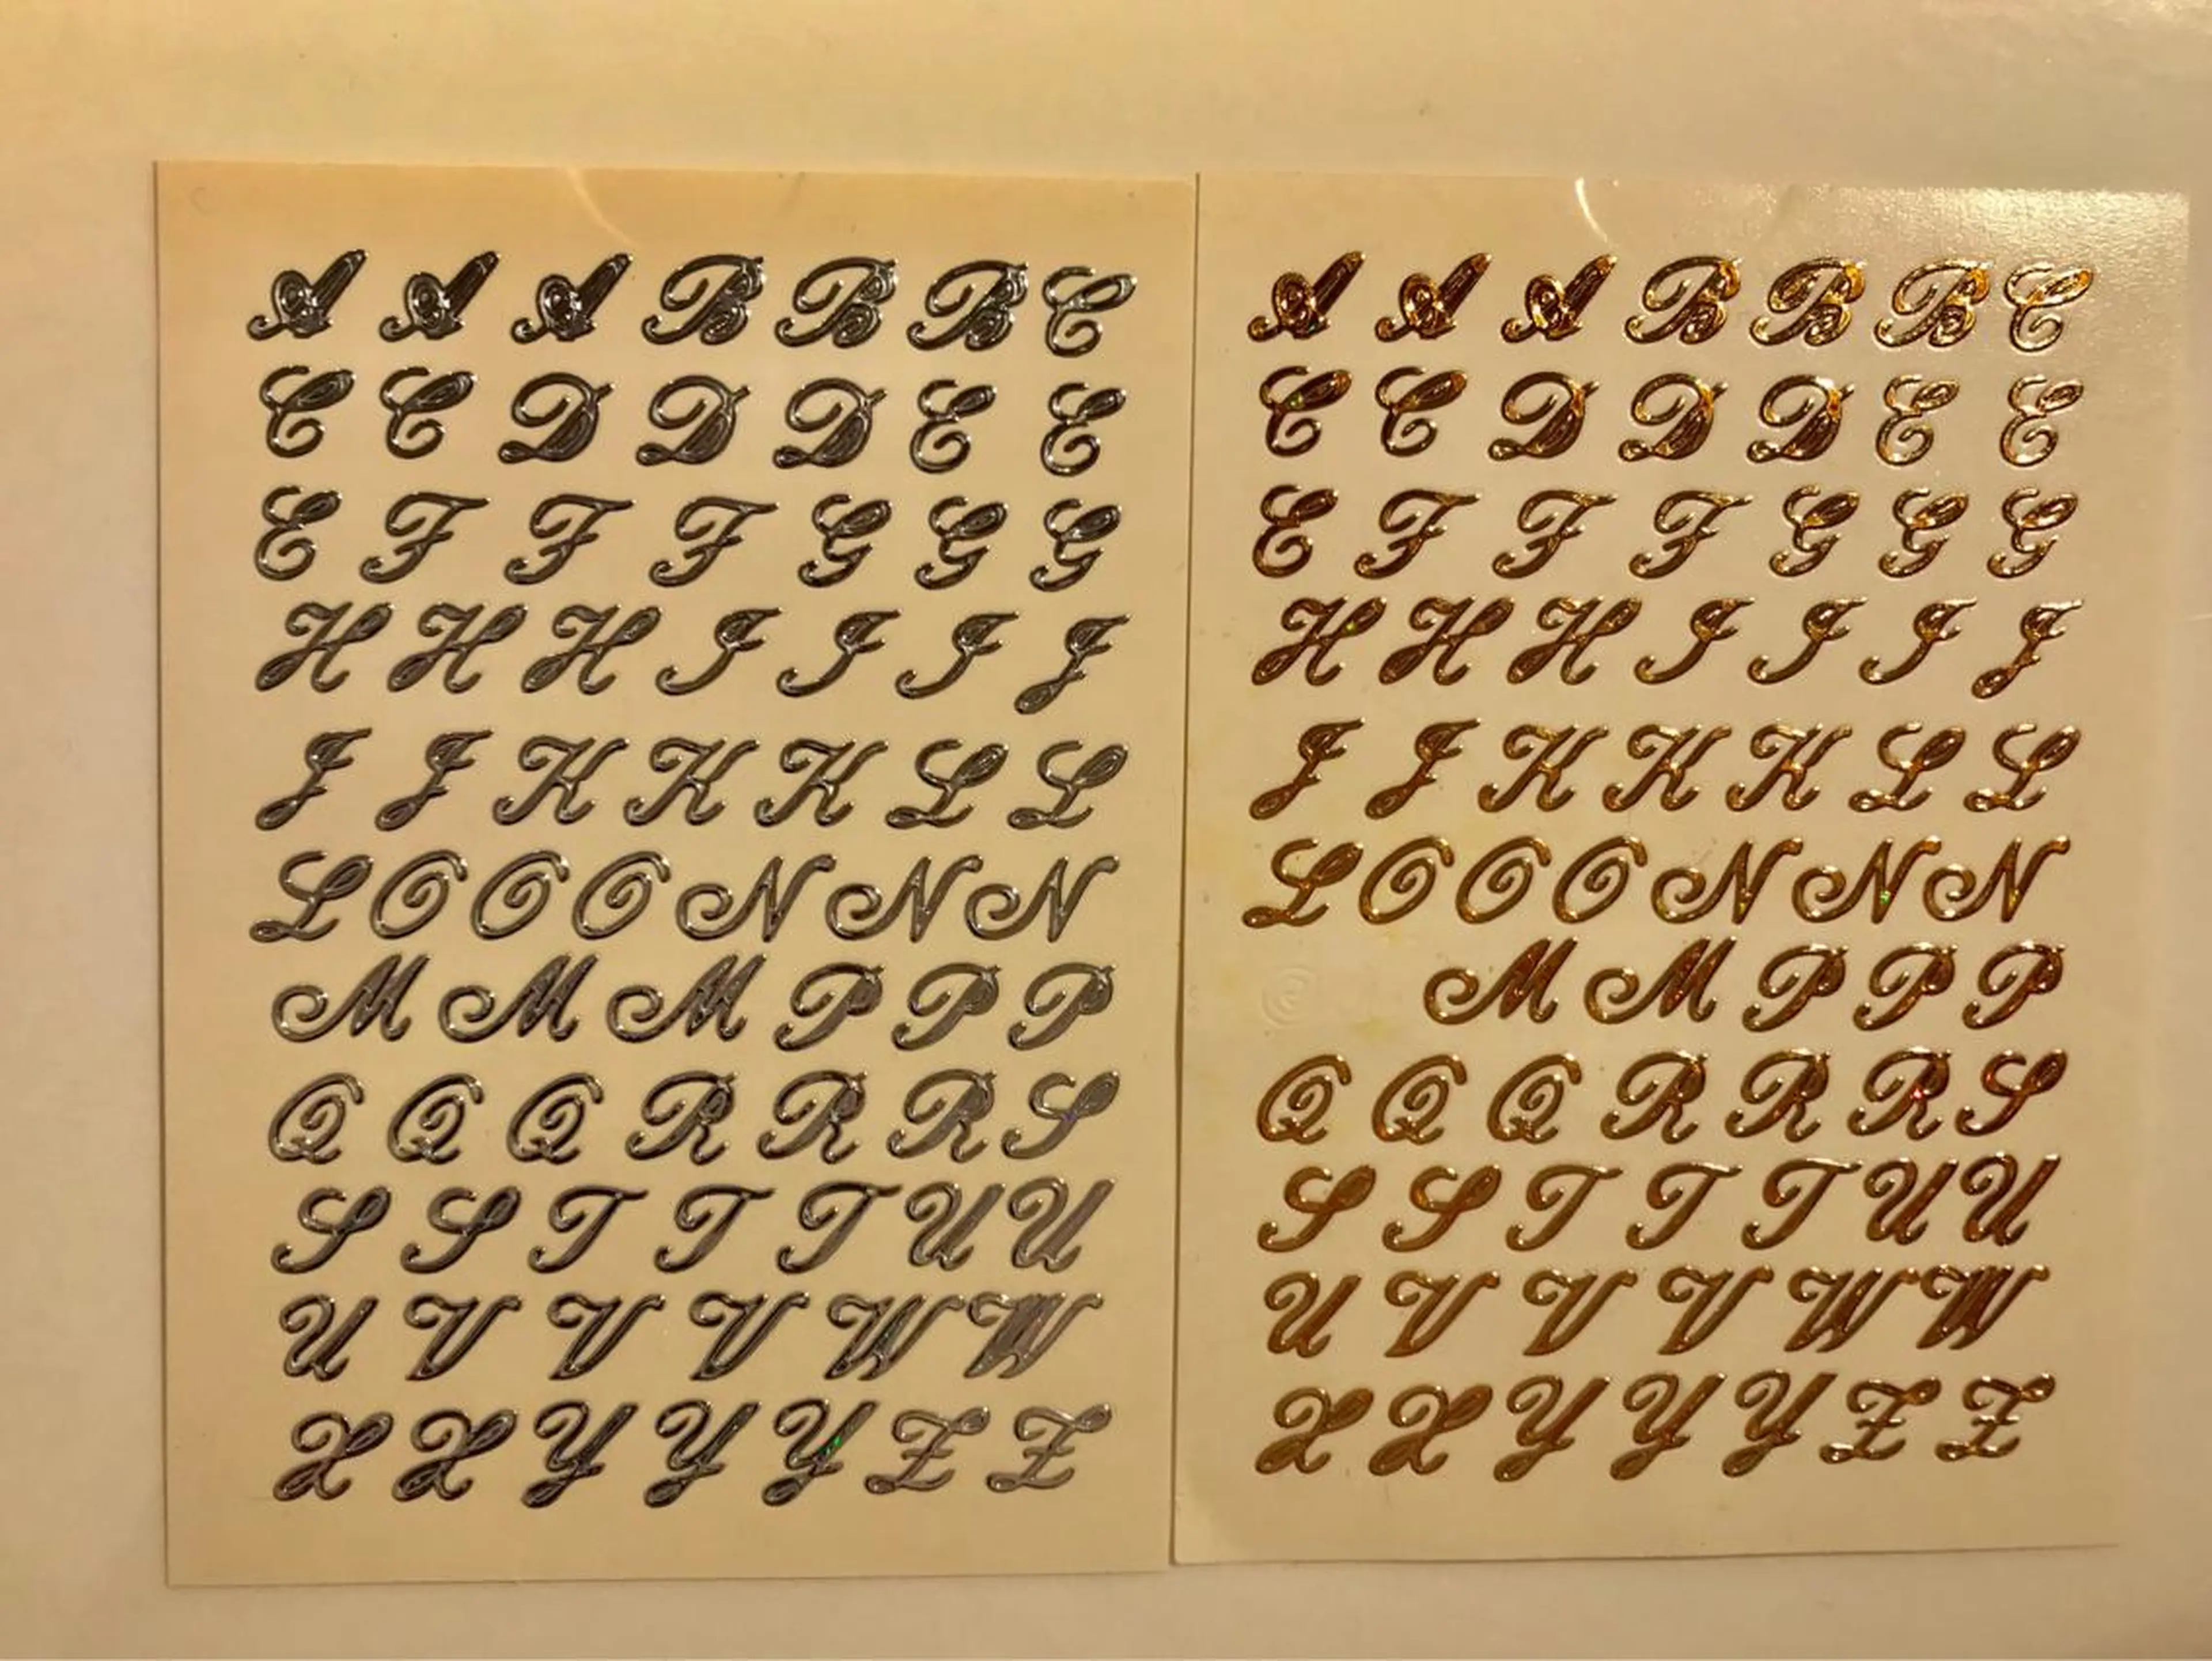 A A A B B B C
C C D D D E E
E F F F G G G
H H H I I I J
J J K K K L L
L O O O N N N
M M M P P P
Q Q Q R R R S
S S T T T U U
U V V V W W
X X Y Y Y Z Z
A A A B B B C
C C D D D E E
E F F F G G G
H H H I I I J
J J K K K L L
L O O O N N N
M M P P P
Q Q Q R R R S
S S T T T U U
U V V V W W
X X Y Y Y Z Z